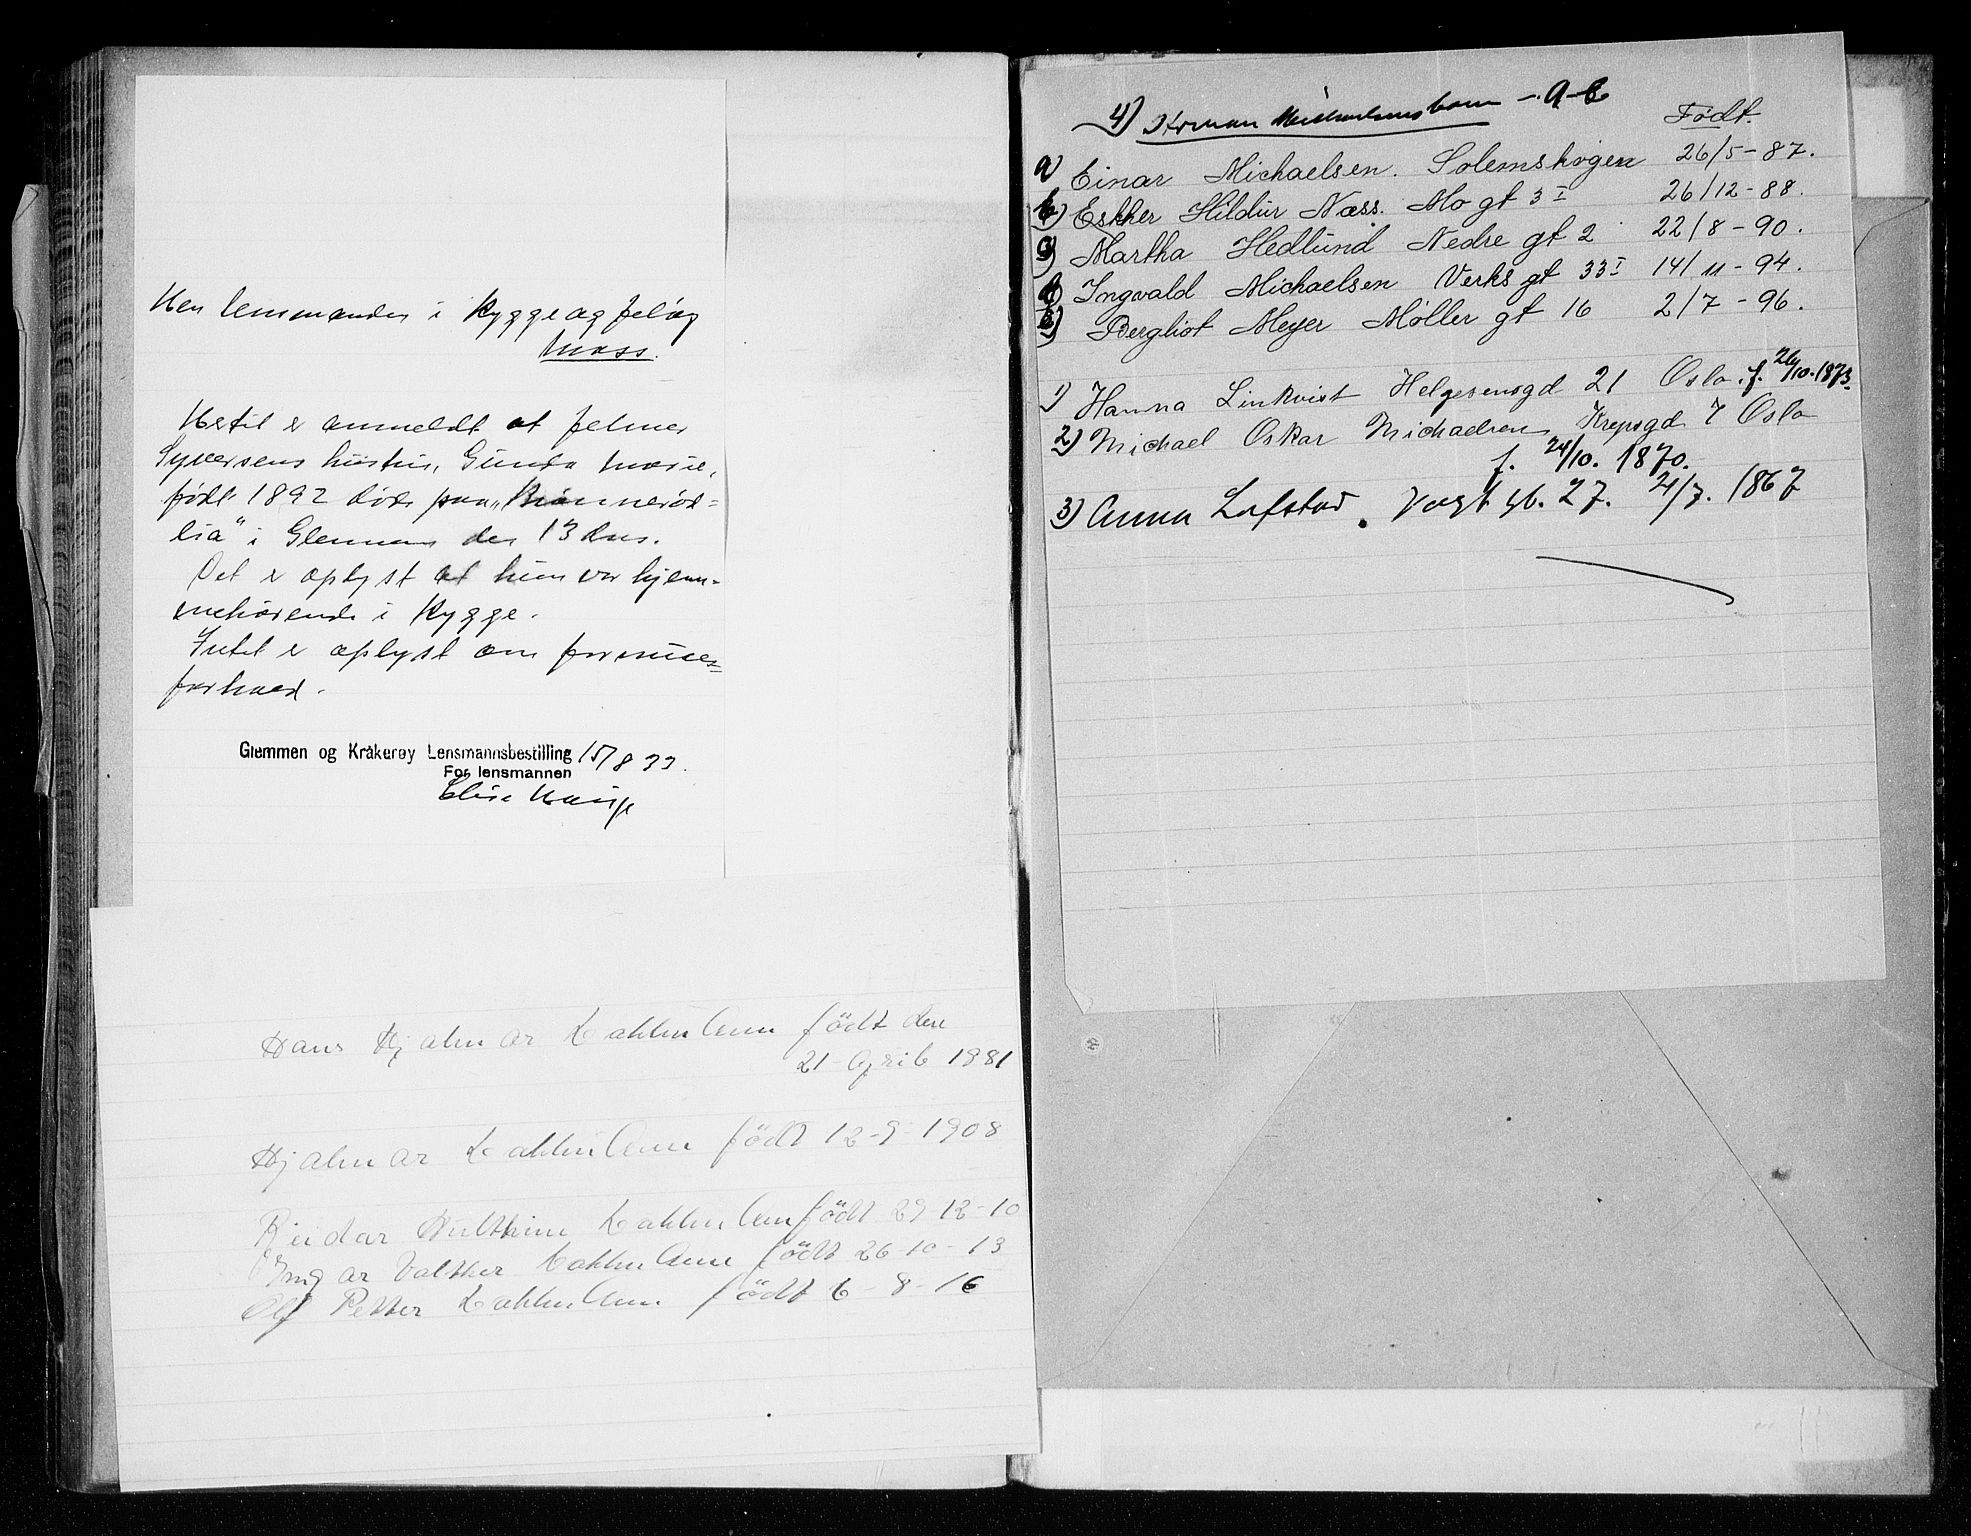 Herr lensmanden i Rygge og
Moss.
Hertil er anmeldt at
Syversens hustru, Gunda Marie,
født 1892 døde paa „
lia" i Glemmen den 13 ds.
Det er oplyst at hun var hjem-
mehørende i Rygge.
Intet er oplyst om formues-
forhold.
Glemmen og Kråkerøy Lensmannsbestilling 15/8 33.
For lensmannen
Hans Hjalmar født den
21 April 1881
Hjalmar født 12-9-1908
Reidar født 29-12-10
Ingar Valther født 26-10-13
Petter født 6-8-16
4) Herman Michaelsens barn - a-e
Født.
a) Einar Michaelsen. Solemskogen 26/5-87.
b) Esther Hildur Næss. Mo gt 3 I 26/12-88.
c) Martha Hedlund Nedre gt 2 22/8-90.
d) Ingvald Michaelsen Verks gt 33 I 14/11-94.
e) Bergliot Meyer Møller gt 16 2/7-96.
1) Hanna Linkvist Helgesensgd 21 Oslo. f. 26/10.1873.
2) Michael Oskar Michaelsen Krepsgd 7 Oslo
f. 24/10. 1870.
3) Anna Lofstad. Vogt gt. 27. 21/7. 1867